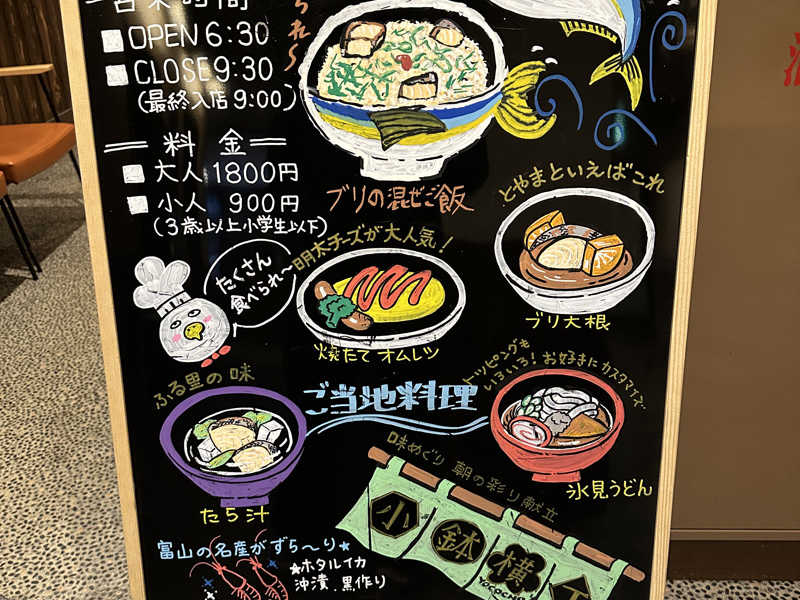 営業時間
OPEN 6:30
CLOSE 9:30
(最終入店 9:00)
料金
大人 1800円
小人 900円
(3歳以上小学生以下)
られ〜
ブリの混ぜご飯
とやまといえばこれ
ブリ大根
たくさん
食べられ〜
明太チーズが大人気!
焼たてオムレツ
ふる里の味
たら汁
ご当地料理
トッピングも
いろいろ!お好きにカスタマイズ
氷見うどん
味めぐり 朝の彩り献立
小鉢横
YOCOCHO
富山の名産がずら〜り★
★ホタルイカ
沖漬.黒作り